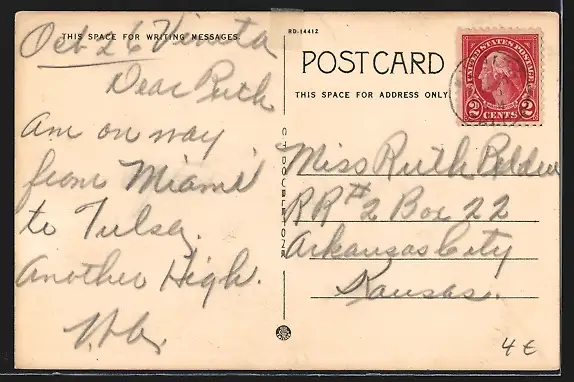 THIS SPACE FOR WRITING MESSAGES.
Oct 26 Vinita
Dear Ruth
Am on way
from Miami
to Tulsa.
Another High.
RD-14412
POST CARD
THIS SPACE FOR ADDRESS ONLY
UNITED STATES POSTAGE
2 CENTS 2
Miss Ruth Belden
RR #2 Box 22
Arkansas City
Kansas.
4 €